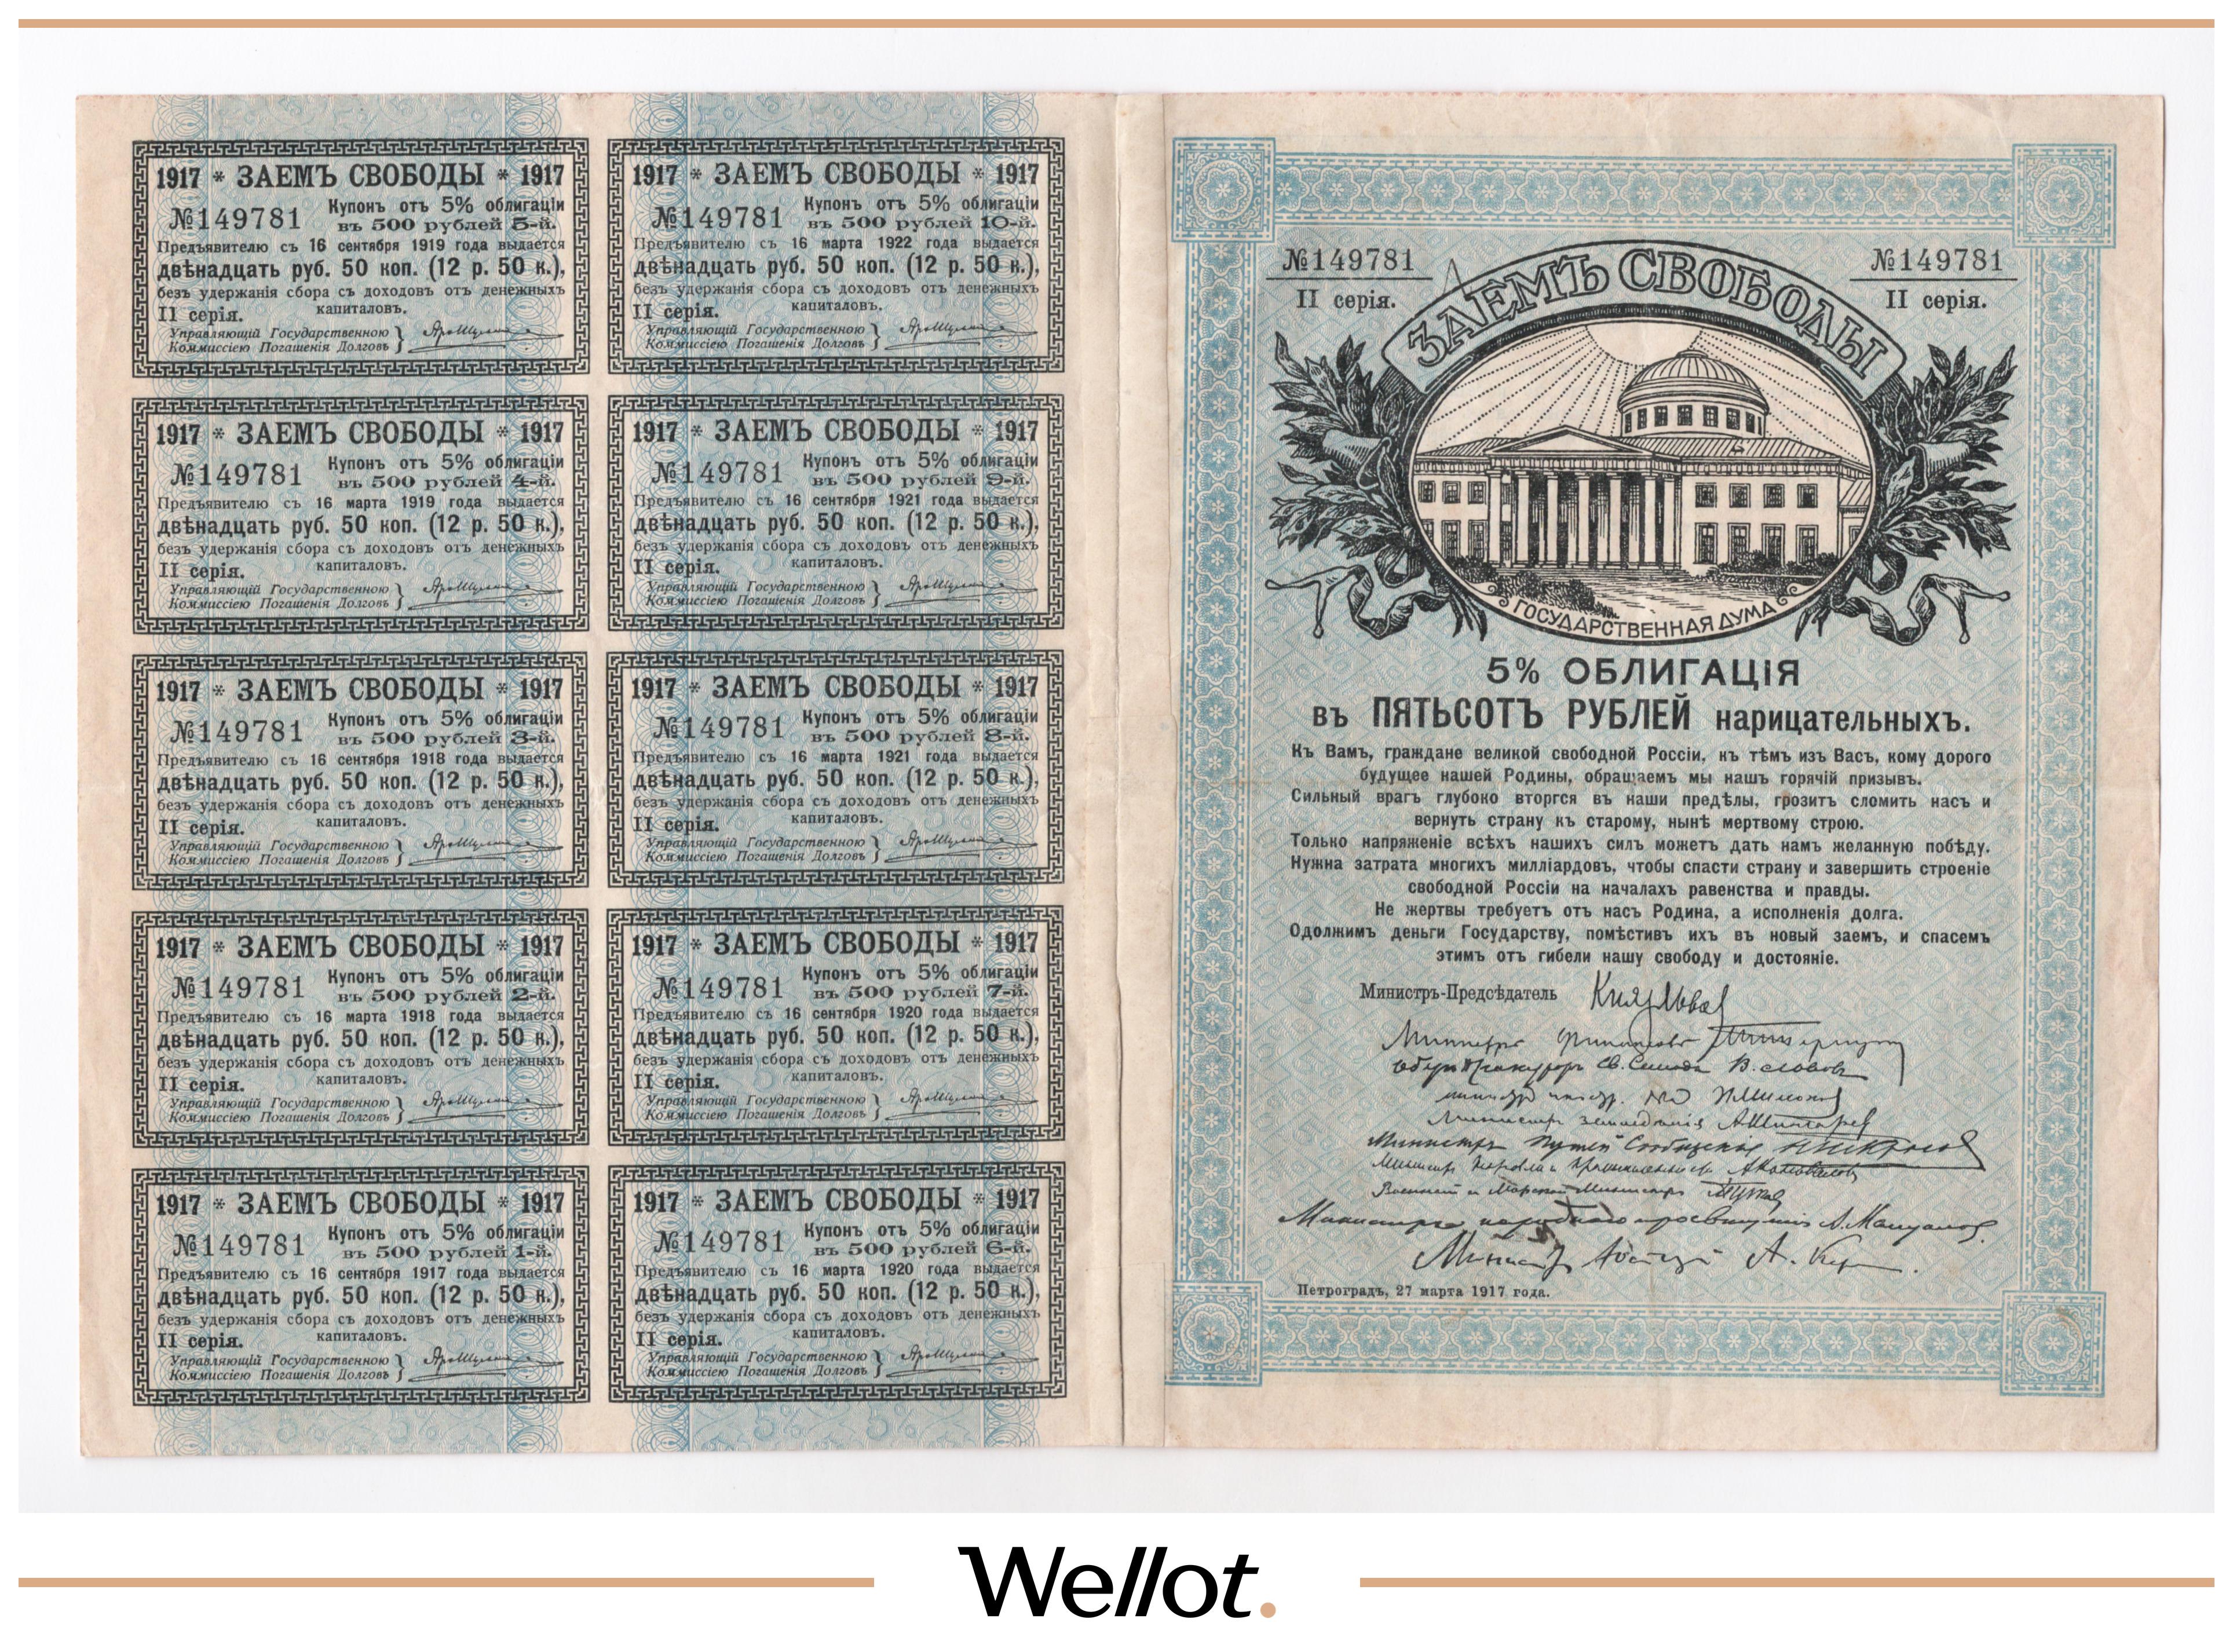 1917 * ЗАЕМЪ СВОБОДЫ * 1917
№149781 Купонъ отъ 5% облигаціи
въ 500 рублей 5-й.
Предъявителю съ 16 сентября 1919 года выдается
двѣнадцать руб. 50 коп. (12 р. 50 к.),
безъ удержанія сбора съ доходовъ отъ денежныхъ
капиталовъ.
II серія.
Управляющій Государственною
Коммиссіею Погашенія Долговъ
1917 * ЗАЕМЪ СВОБОДЫ * 1917
№149781 Купонъ отъ 5% облигаціи
въ 500 рублей 4-й.
Предъявителю съ 16 марта 1919 года выдается
двѣнадцать руб. 50 коп. (12 р. 50 к.),
безъ удержанія сбора съ доходовъ отъ денежныхъ
капиталовъ.
II серія.
Управляющій Государственною
Коммиссіею Погашенія Долговъ
1917 * ЗАЕМЪ СВОБОДЫ * 1917
№149781 Купонъ отъ 5% облигаціи
въ 500 рублей 3-й.
Предъявителю съ 16 сентября 1918 года выдается
двѣнадцать руб. 50 коп. (12 р. 50 к.),
безъ удержанія сбора съ доходовъ отъ денежныхъ
капиталовъ.
II серія.
Управляющій Государственною
Коммиссіею Погашенія Долговъ
1917 * ЗАЕМЪ СВОБОДЫ * 1917
№149781 Купонъ отъ 5% облигаціи
въ 500 рублей 2-й.
Предъявителю съ 16 марта 1918 года выдается
двѣнадцать руб. 50 коп. (12 р. 50 к.),
безъ удержанія сбора съ доходовъ отъ денежныхъ
капиталовъ.
II серія.
Управляющій Государственною
Коммиссіею Погашенія Долговъ
1917 * ЗАЕМЪ СВОБОДЫ * 1917
№149781 Купонъ отъ 5% облигаціи
въ 500 рублей 1-й.
Предъявителю съ 16 сентября 1917 года выдается
двѣнадцать руб. 50 коп. (12 р. 50 к.),
безъ удержанія сбора съ доходовъ отъ денежныхъ
капиталовъ.
II серія.
Управляющій Государственною
Коммиссіею Погашенія Долговъ
1917 * ЗАЕМЪ СВОБОДЫ * 1917
№149781 Купонъ отъ 5% облигаціи
въ 500 рублей 10-й.
Предъявителю съ 16 марта 1922 года выдается
двѣнадцать руб. 50 коп. (12 р. 50 к.),
безъ удержанія сбора съ доходовъ отъ денежныхъ
капиталовъ.
II серія.
Управляющій Государственною
Коммиссіею Погашенія Долговъ
1917 * ЗАЕМЪ СВОБОДЫ * 1917
№149781 Купонъ отъ 5% облигаціи
въ 500 рублей 9-й.
Предъявителю съ 16 сентября 1921 года выдается
двѣнадцать руб. 50 коп. (12 р. 50 к.),
безъ удержанія сбора съ доходовъ отъ денежныхъ
капиталовъ.
II серія.
Управляющій Государственною
Коммиссіею Погашенія Долговъ
1917 * ЗАЕМЪ СВОБОДЫ * 1917
№149781 Купонъ отъ 5% облигаціи
въ 500 рублей 8-й.
Предъявителю съ 16 марта 1921 года выдается
двѣнадцать руб. 50 коп. (12 р. 50 к.),
безъ удержанія сбора съ доходовъ отъ денежныхъ
капиталовъ.
II серія.
Управляющій Государственною
Коммиссіею Погашенія Долговъ
1917 * ЗАЕМЪ СВОБОДЫ * 1917
№149781 Купонъ отъ 5% облигаціи
въ 500 рублей 7-й.
Предъявителю съ 16 сентября 1920 года выдается
двѣнадцать руб. 50 коп. (12 р. 50 к.),
безъ удержанія сбора съ доходовъ отъ денежныхъ
капиталовъ.
II серія.
Управляющій Государственною
Коммиссіею Погашенія Долговъ
1917 * ЗАЕМЪ СВОБОДЫ * 1917
№149781 Купонъ отъ 5% облигаціи
въ 500 рублей 6-й.
Предъявителю съ 16 марта 1920 года выдается
двѣнадцать руб. 50 коп. (12 р. 50 к.),
безъ удержанія сбора съ доходовъ отъ денежныхъ
капиталовъ.
II серія.
Управляющій Государственною
Коммиссіею Погашенія Долговъ
№149781
II серія.
ЗАЕМЪ СВОБОДЫ
№149781
II серія.
ГОСУДАРСТВЕННАЯ ДУМА
5% ОБЛИГАЦІЯ
въ ПЯТЬСОТЪ РУБЛЕЙ нарицательныхъ.
Къ Вамъ, граждане великой свободной Россіи, къ тѣмъ изъ Васъ, кому дорого
будущее нашей Родины, обращаемъ мы нашъ горячій призывъ.
Сильный врагъ глубоко вторгся въ наши предѣлы, грозитъ сломить насъ и
вернуть страну къ старому, нынѣ мертвому строю.
Только напряженіе всѣхъ нашихъ силъ можетъ дать намъ желанную побѣду.
Нужна затрата многихъ милліардовъ, чтобы спасти страну и завершить строеніе
свободной Россіи на началахъ равенства и правды.
Не жертвы требуетъ отъ насъ Родина, а исполненія долга.
Одолжимъ деньги Государству, помѣстивъ ихъ въ новый заемъ, и спасемъ
этимъ отъ гибели нашу свободу и достояніе.
Министръ-Предсѣдатель
Министръ Путей Сообщенія
Петроградъ, 27 марта 1917 года.
Wellot.